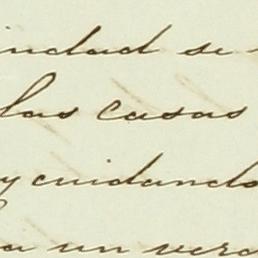 indad se
las casas
y cuidando
a un verd